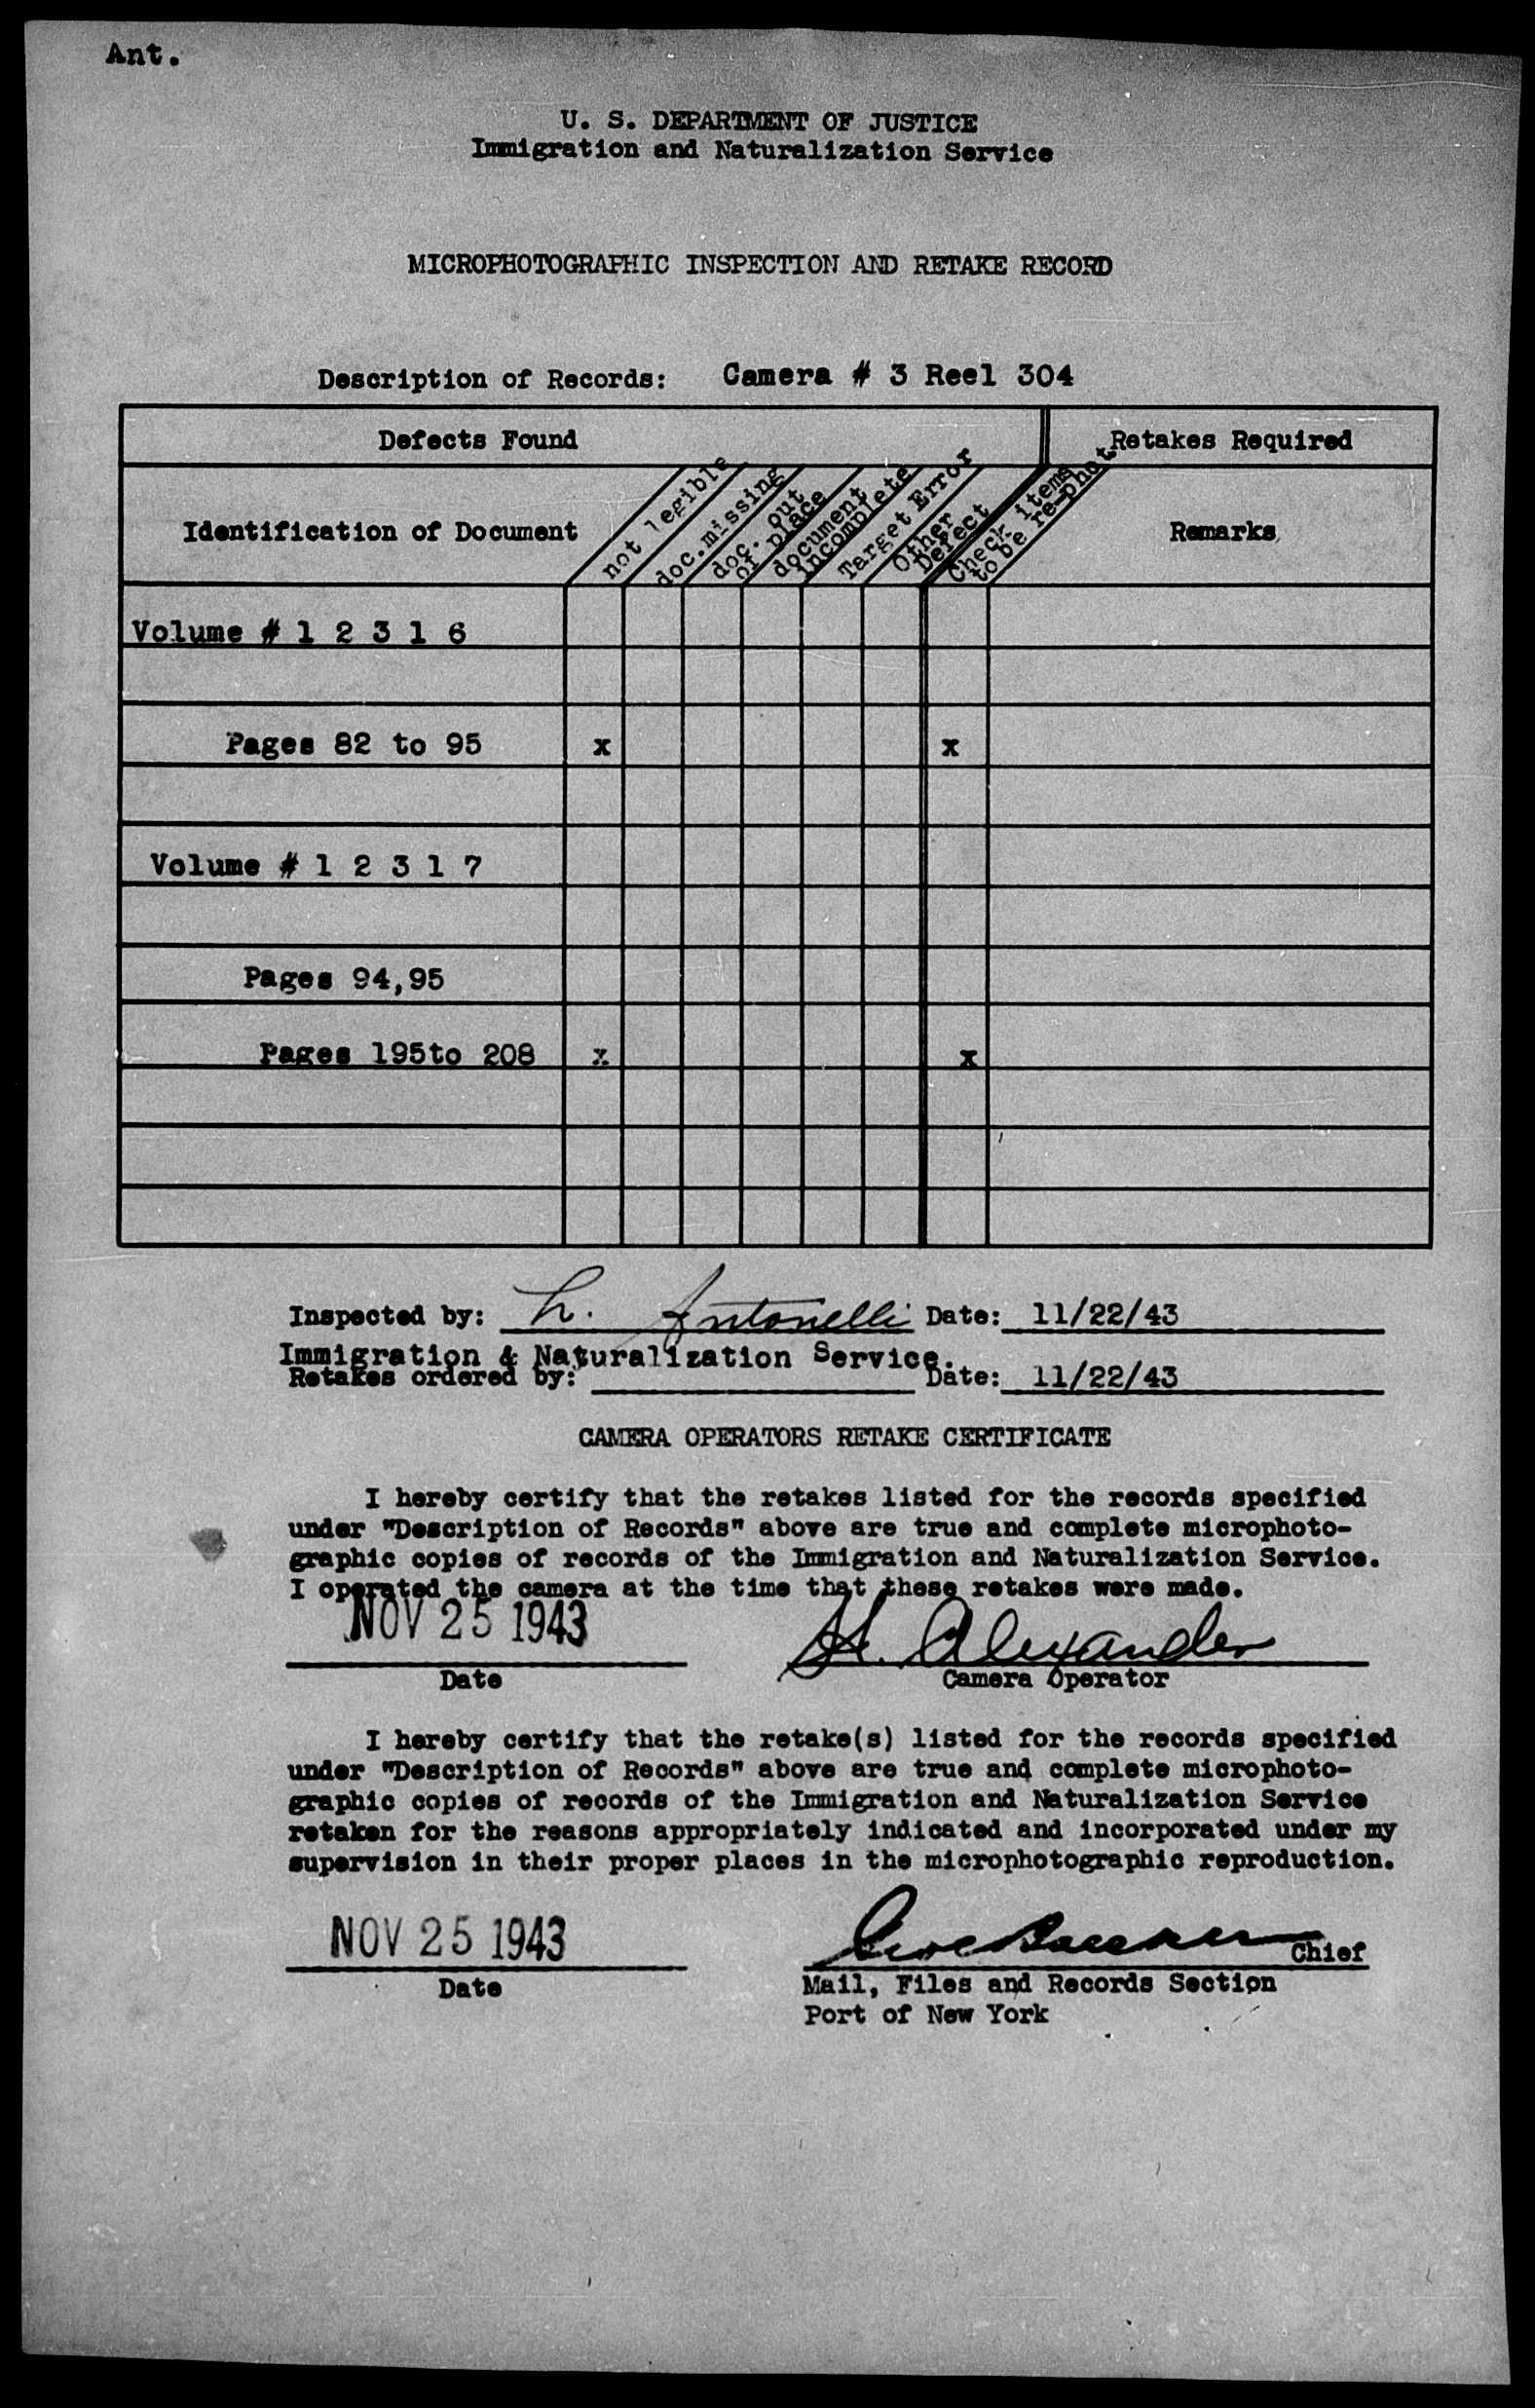 Ant.
U. S. DEPARTMENT OF JUSTICE
Immigration and Naturalization Service
MICROPHOTOGRAPHIC INSPECTION AND RETAKE RECORD
Description of Records: Camera # 3 Reel 304
Defects Found
Retakes Required
Identification of Document
not legible
doc.missing
doc. out
of place
document
incomplete
Target Error
Other
Defect
Check items
to be re-phot.
Remarks
Volume # 1 2 3 1 6
Pages 82 to 95 x x
Volume # 1 2 3 1 7
Pages 94,95
Pages 195to 208 x x
Inspected by: L. Antonelli Date: 11/22/43
Immigration & Naturalization Service.
Retakes ordered by: Date: 11/22/43
CAMERA OPERATORS RETAKE CERTIFICATE
I hereby certify that the retakes listed for the records specified
under "Description of Records" above are true and complete microphoto-
graphic copies of records of the Immigration and Naturalization Service.
I operated the camera at the time that these retakes were made.
NOV 25 1943 H. Alexander
Date Camera Operator
I hereby certify that the retake(s) listed for the records specified
under "Description of Records" above are true and complete microphoto-
graphic copies of records of the Immigration and Naturalization Service
retaken for the reasons appropriately indicated and incorporated under my
supervision in their proper places in the microphotographic reproduction.
NOV 25 1943 Chief
Date Mail, Files and Records Section
Port of New York